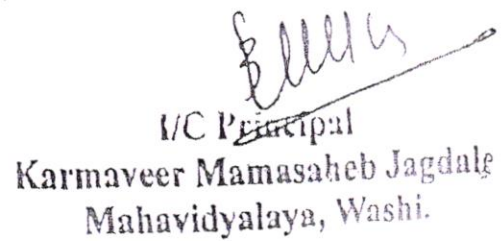 I/C Principal
Karmaveer Mamasaheb Jagdale
Mahavidyalaya, Washi.